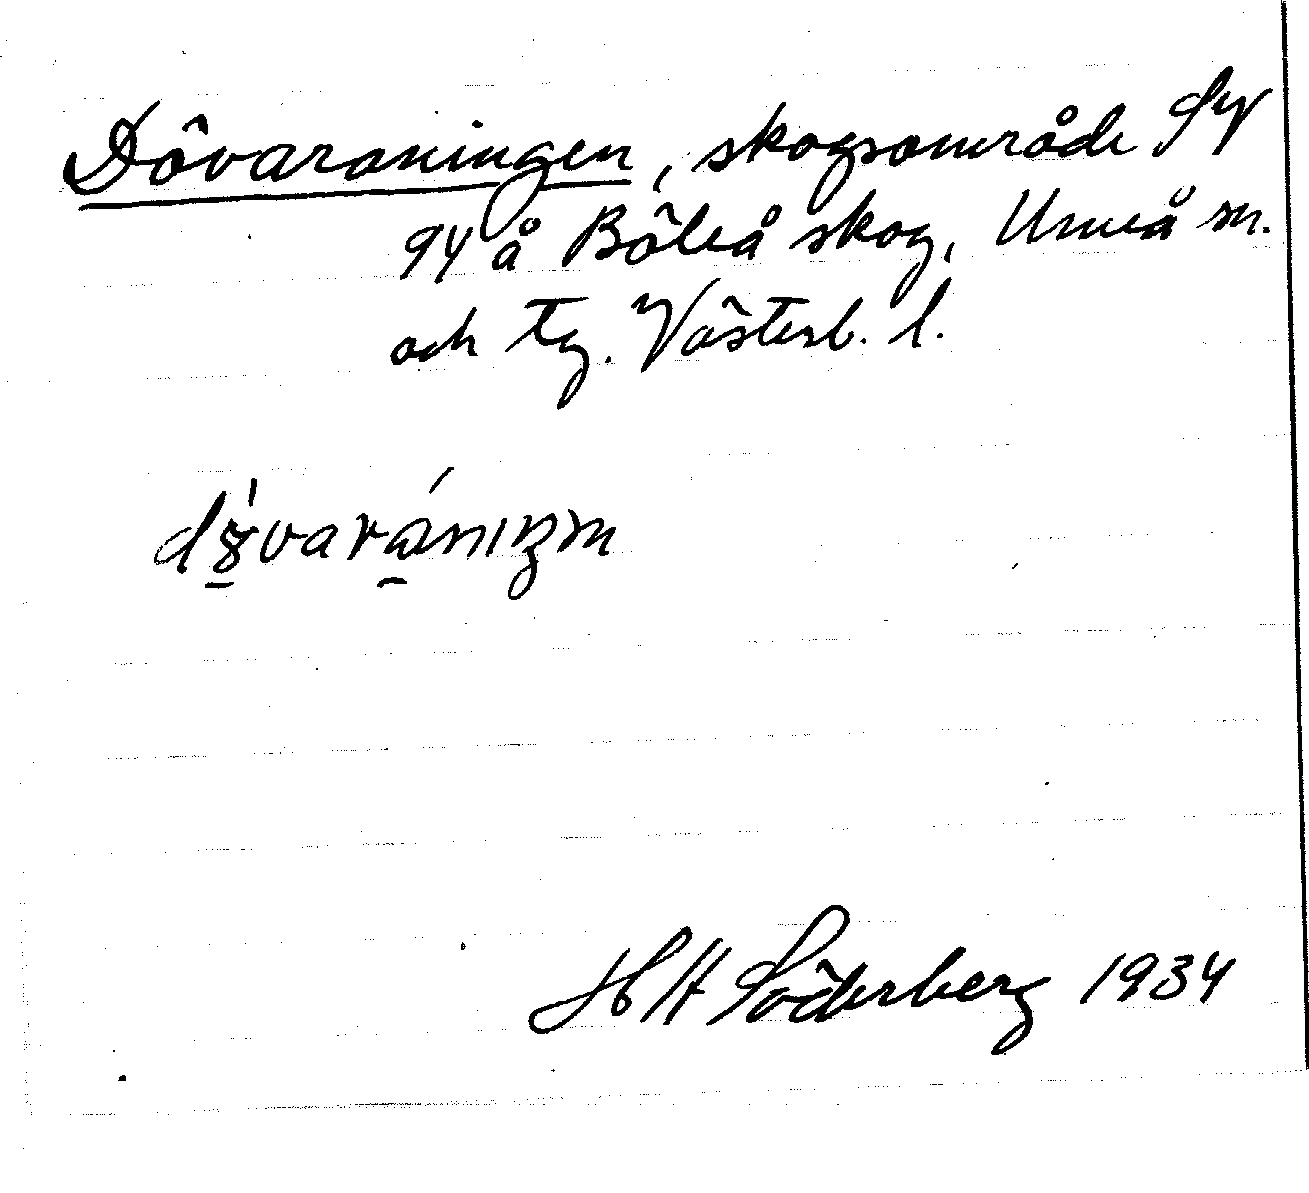 Dövaraningen, skogsområde Sy
94 å Böleå skog, Umeå sn.
och tg. Västerb. l.
H H Söderberg 1934